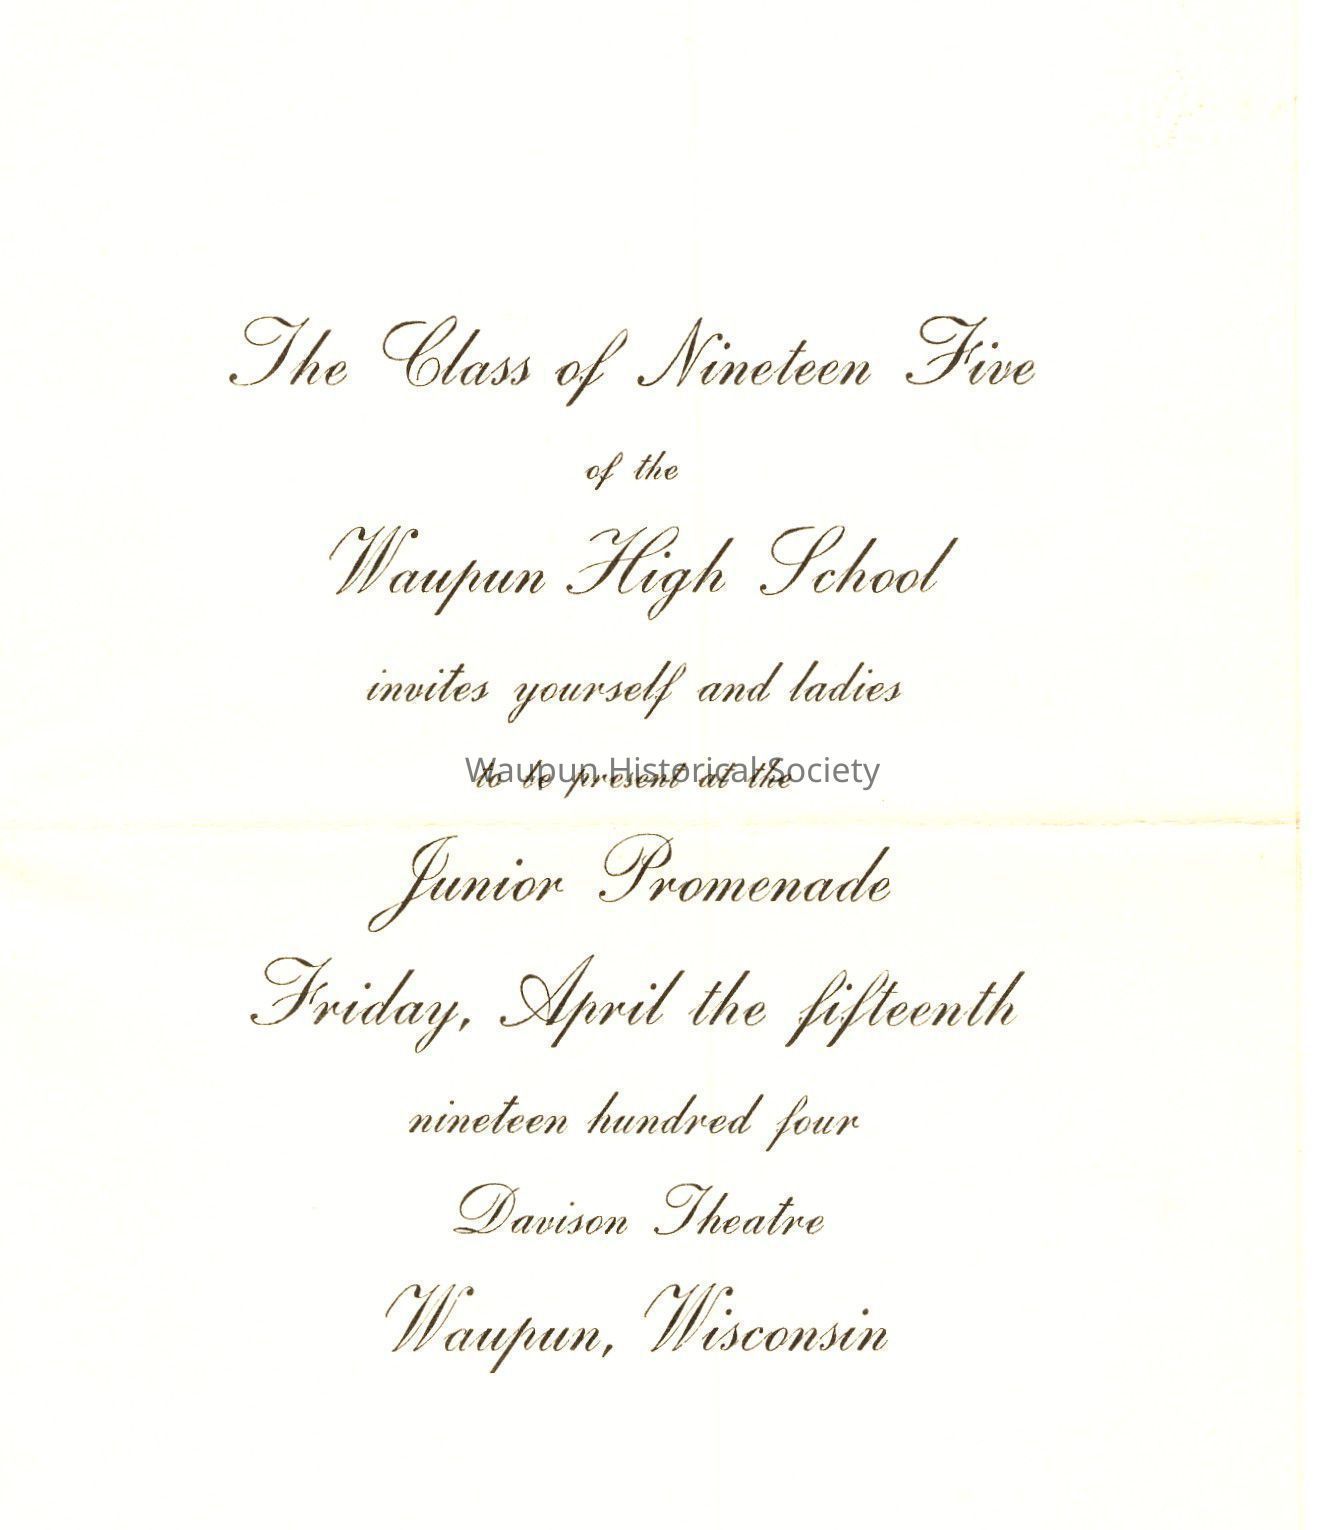 The Class of Nineteen Five
of the
Waupun High School
invites yourself and ladies
to be present at the
Waupun Historical Society
Junior Promenade
Friday, April the fifteenth
nineteen hundred four
Davison Theatre
Waupun, Wisconsin